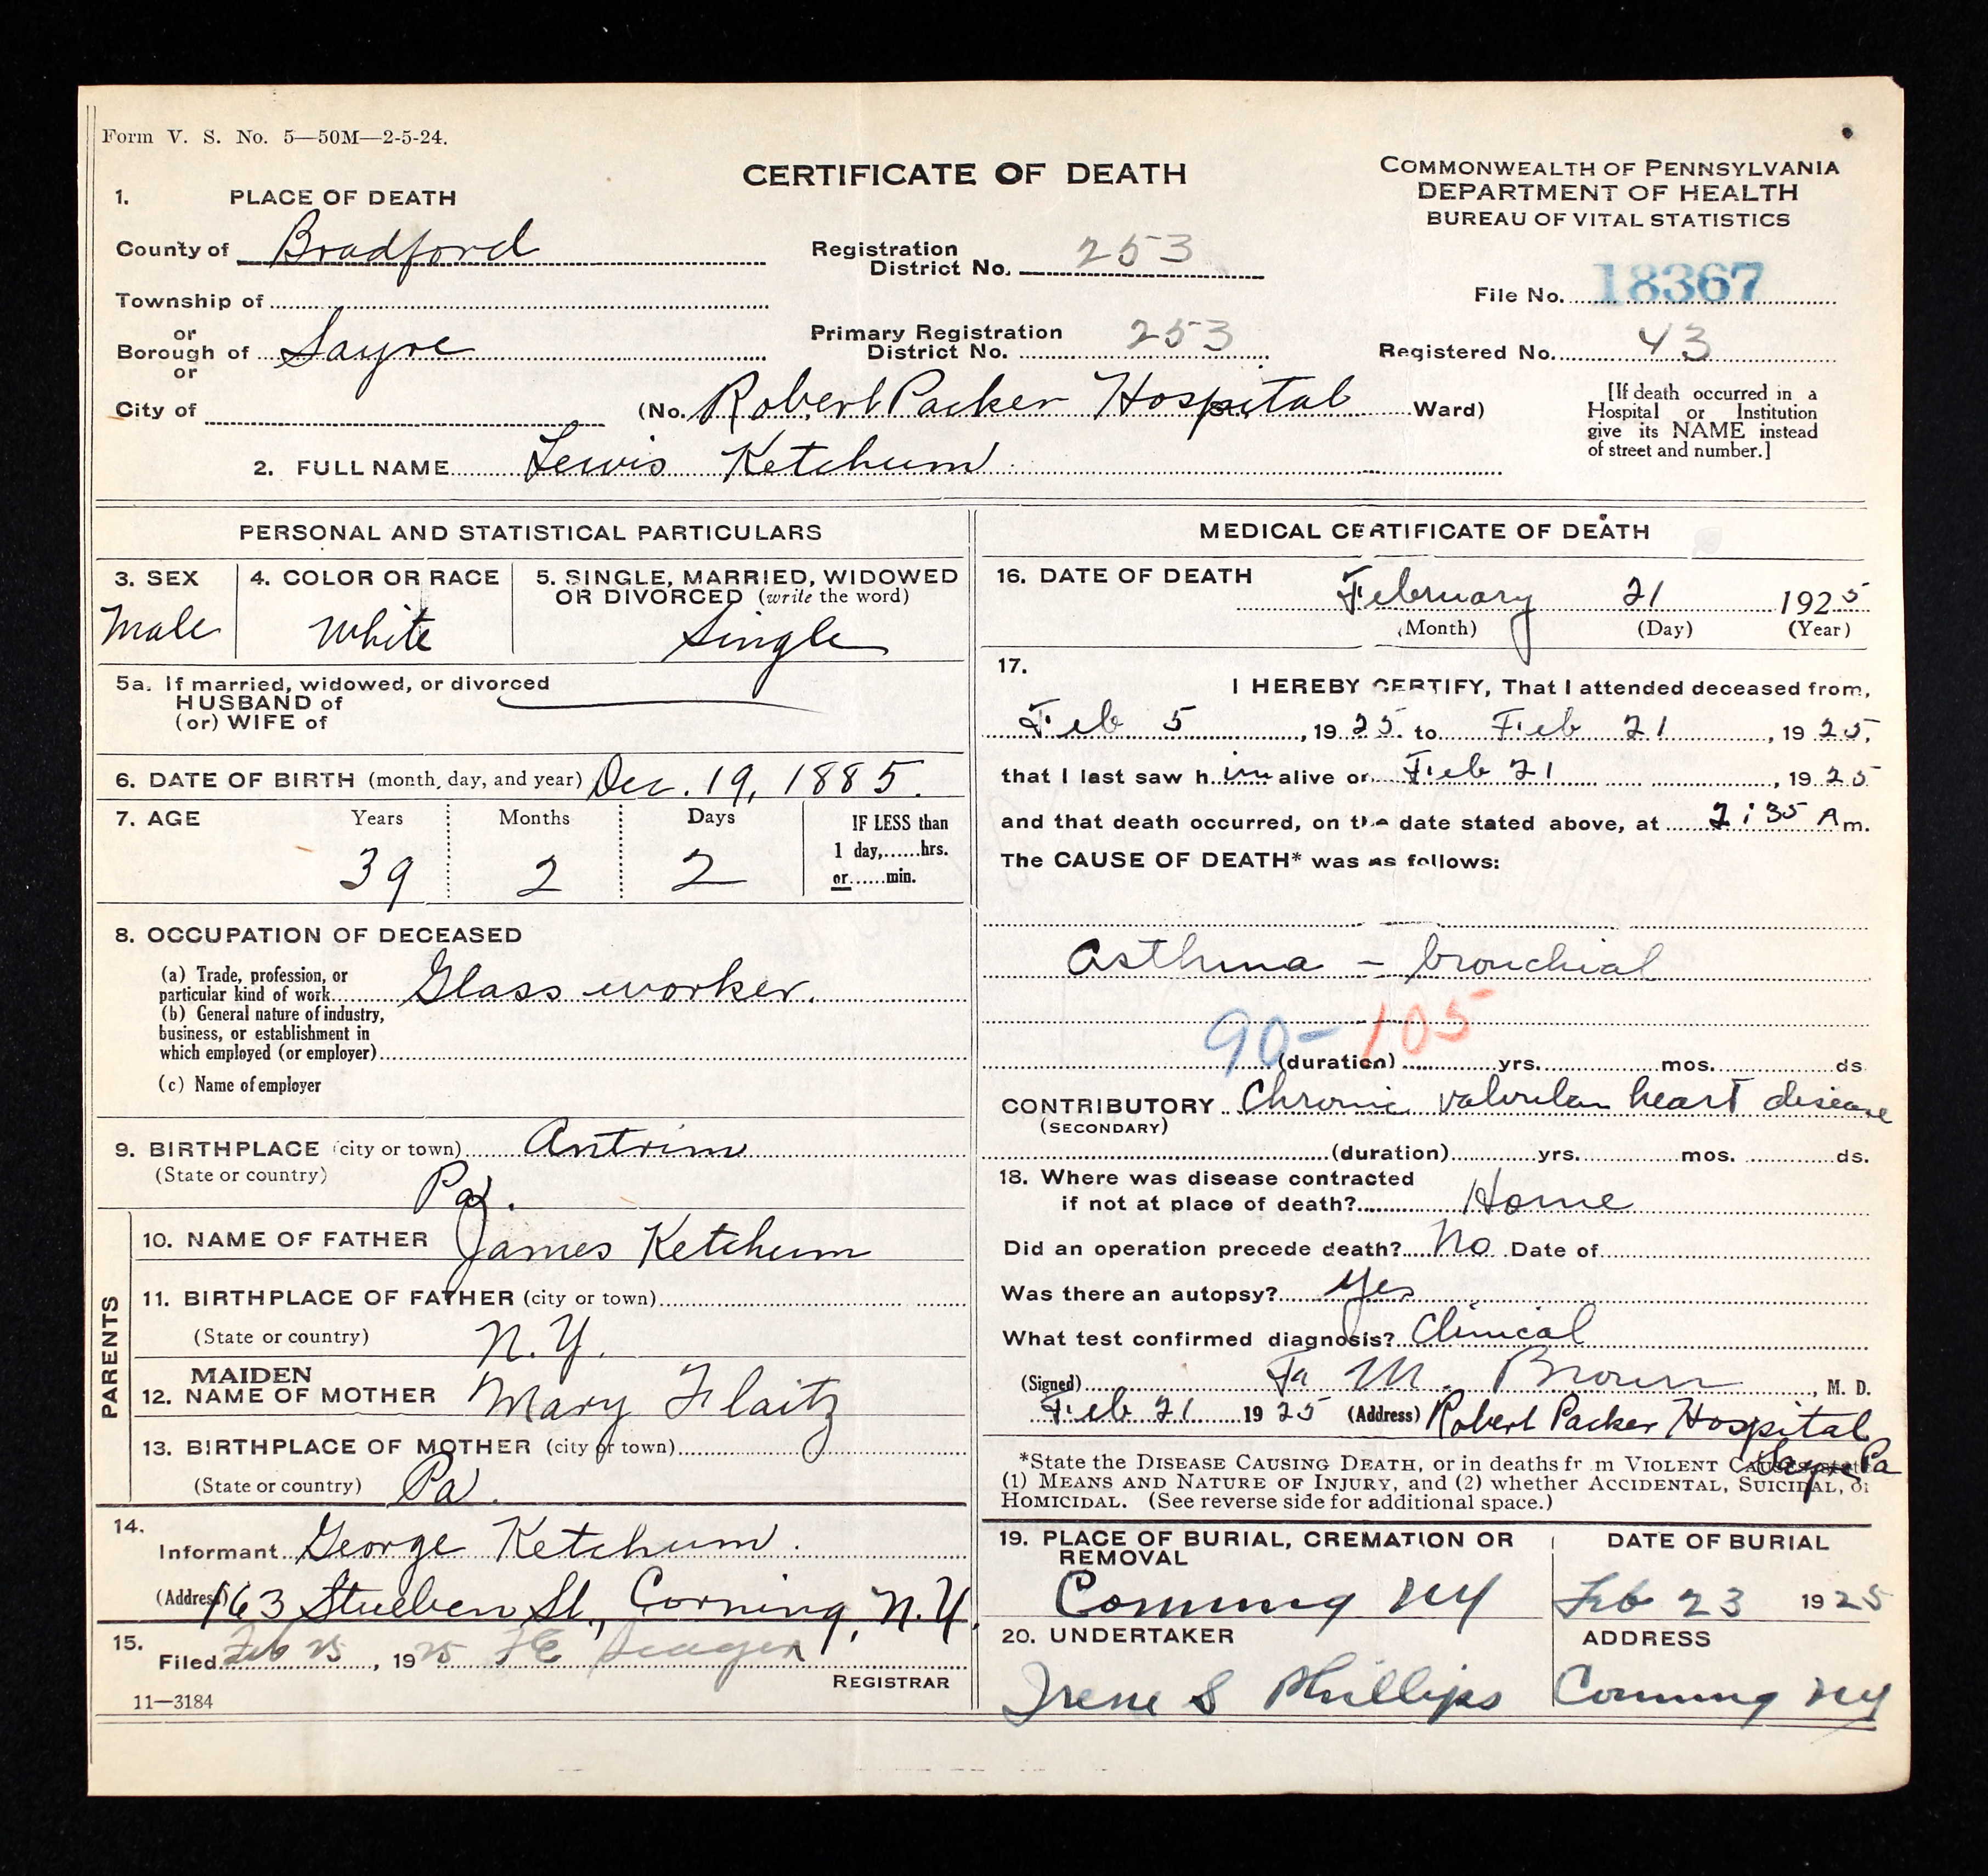 Form V. S. No. 5—50M—2-5-24.
CERTIFICATE OF DEATH
COMMONWEALTH OF PENNSYLVANIA
DEPARTMENT OF HEALTH
BUREAU OF VITAL STATISTICS
1. PLACE OF DEATH
County of Bradford
Registration District No. 253
File No. 18367
Township of
or
Borough of Sayre
or
Primary Registration District No. 253
Registered No. 43
City of
(No. Robert Packer Hospital Ward)
[If death occurred in a
Hospital or Institution
give its NAME instead
of street and number.]
2. FULL NAME Lewis Ketchum
PERSONAL AND STATISTICAL PARTICULARS
3. SEX
Male
4. COLOR OR RACE
White
5. SINGLE, MARRIED, WIDOWED
OR DIVORCED (write the word)
Single
5a. If married, widowed, or divorced
HUSBAND of
(or) WIFE of
6. DATE OF BIRTH (month, day, and year) Dec. 19, 1885.
7. AGE Years Months Days
39 2 2
IF LESS than
1 day,......hrs.
or......min.
8. OCCUPATION OF DECEASED
(a) Trade, profession, or
particular kind of work Glass worker.
(b) General nature of industry,
business, or establishment in
which employed (or employer)
(c) Name of employer
9. BIRTHPLACE (city or town) Antrim
(State or country) Pa.
PARENTS
10. NAME OF FATHER James Ketchum
11. BIRTHPLACE OF FATHER (city or town)
(State or country) N.Y.
MAIDEN
12. NAME OF MOTHER Mary Flaitz
13. BIRTHPLACE OF MOTHER (city or town)
(State or country) Pa.
14.
Informant George Ketchum.
(Address) 163 Stueben St., Corning, N.Y.
15.
Filed Feb 25, 1925 F E Seager
REGISTRAR
11—3184
MEDICAL CERTIFICATE OF DEATH
16. DATE OF DEATH February 21 1925
(Month) (Day) (Year)
17.
I HEREBY CERTIFY, That I attended deceased from,
Feb 5, 1925. to Feb 21, 1925,
that I last saw him alive on Feb 21, 1925
and that death occurred, on the date stated above, at 2:35 Am.
The CAUSE OF DEATH* was as follows:
Asthma - bronchial
90- 105
(duration) yrs. mos. ds
CONTRIBUTORY Chronic valvular heart disease
(SECONDARY)
(duration) yrs. mos. ds.
18. Where was disease contracted
if not at place of death? Home
Did an operation precede death? No Date of
Was there an autopsy? Yes
What test confirmed diagnosis? Clinical
(Signed) M. Brown, M. D.
Feb 21 1925 (Address) Robert Packer Hospital
Sayre Pa
*State the DISEASE CAUSING DEATH, or in deaths from VIOLENT CAUSES state
(1) MEANS AND NATURE OF INJURY, and (2) whether ACCIDENTAL, SUICIDAL, or
HOMICIDAL. (See reverse side for additional space.)
19. PLACE OF BURIAL, CREMATION OR
REMOVAL
Corning NY
DATE OF BURIAL
Feb 23 1925
20. UNDERTAKER
Irene S Phillips
ADDRESS
Corning NY